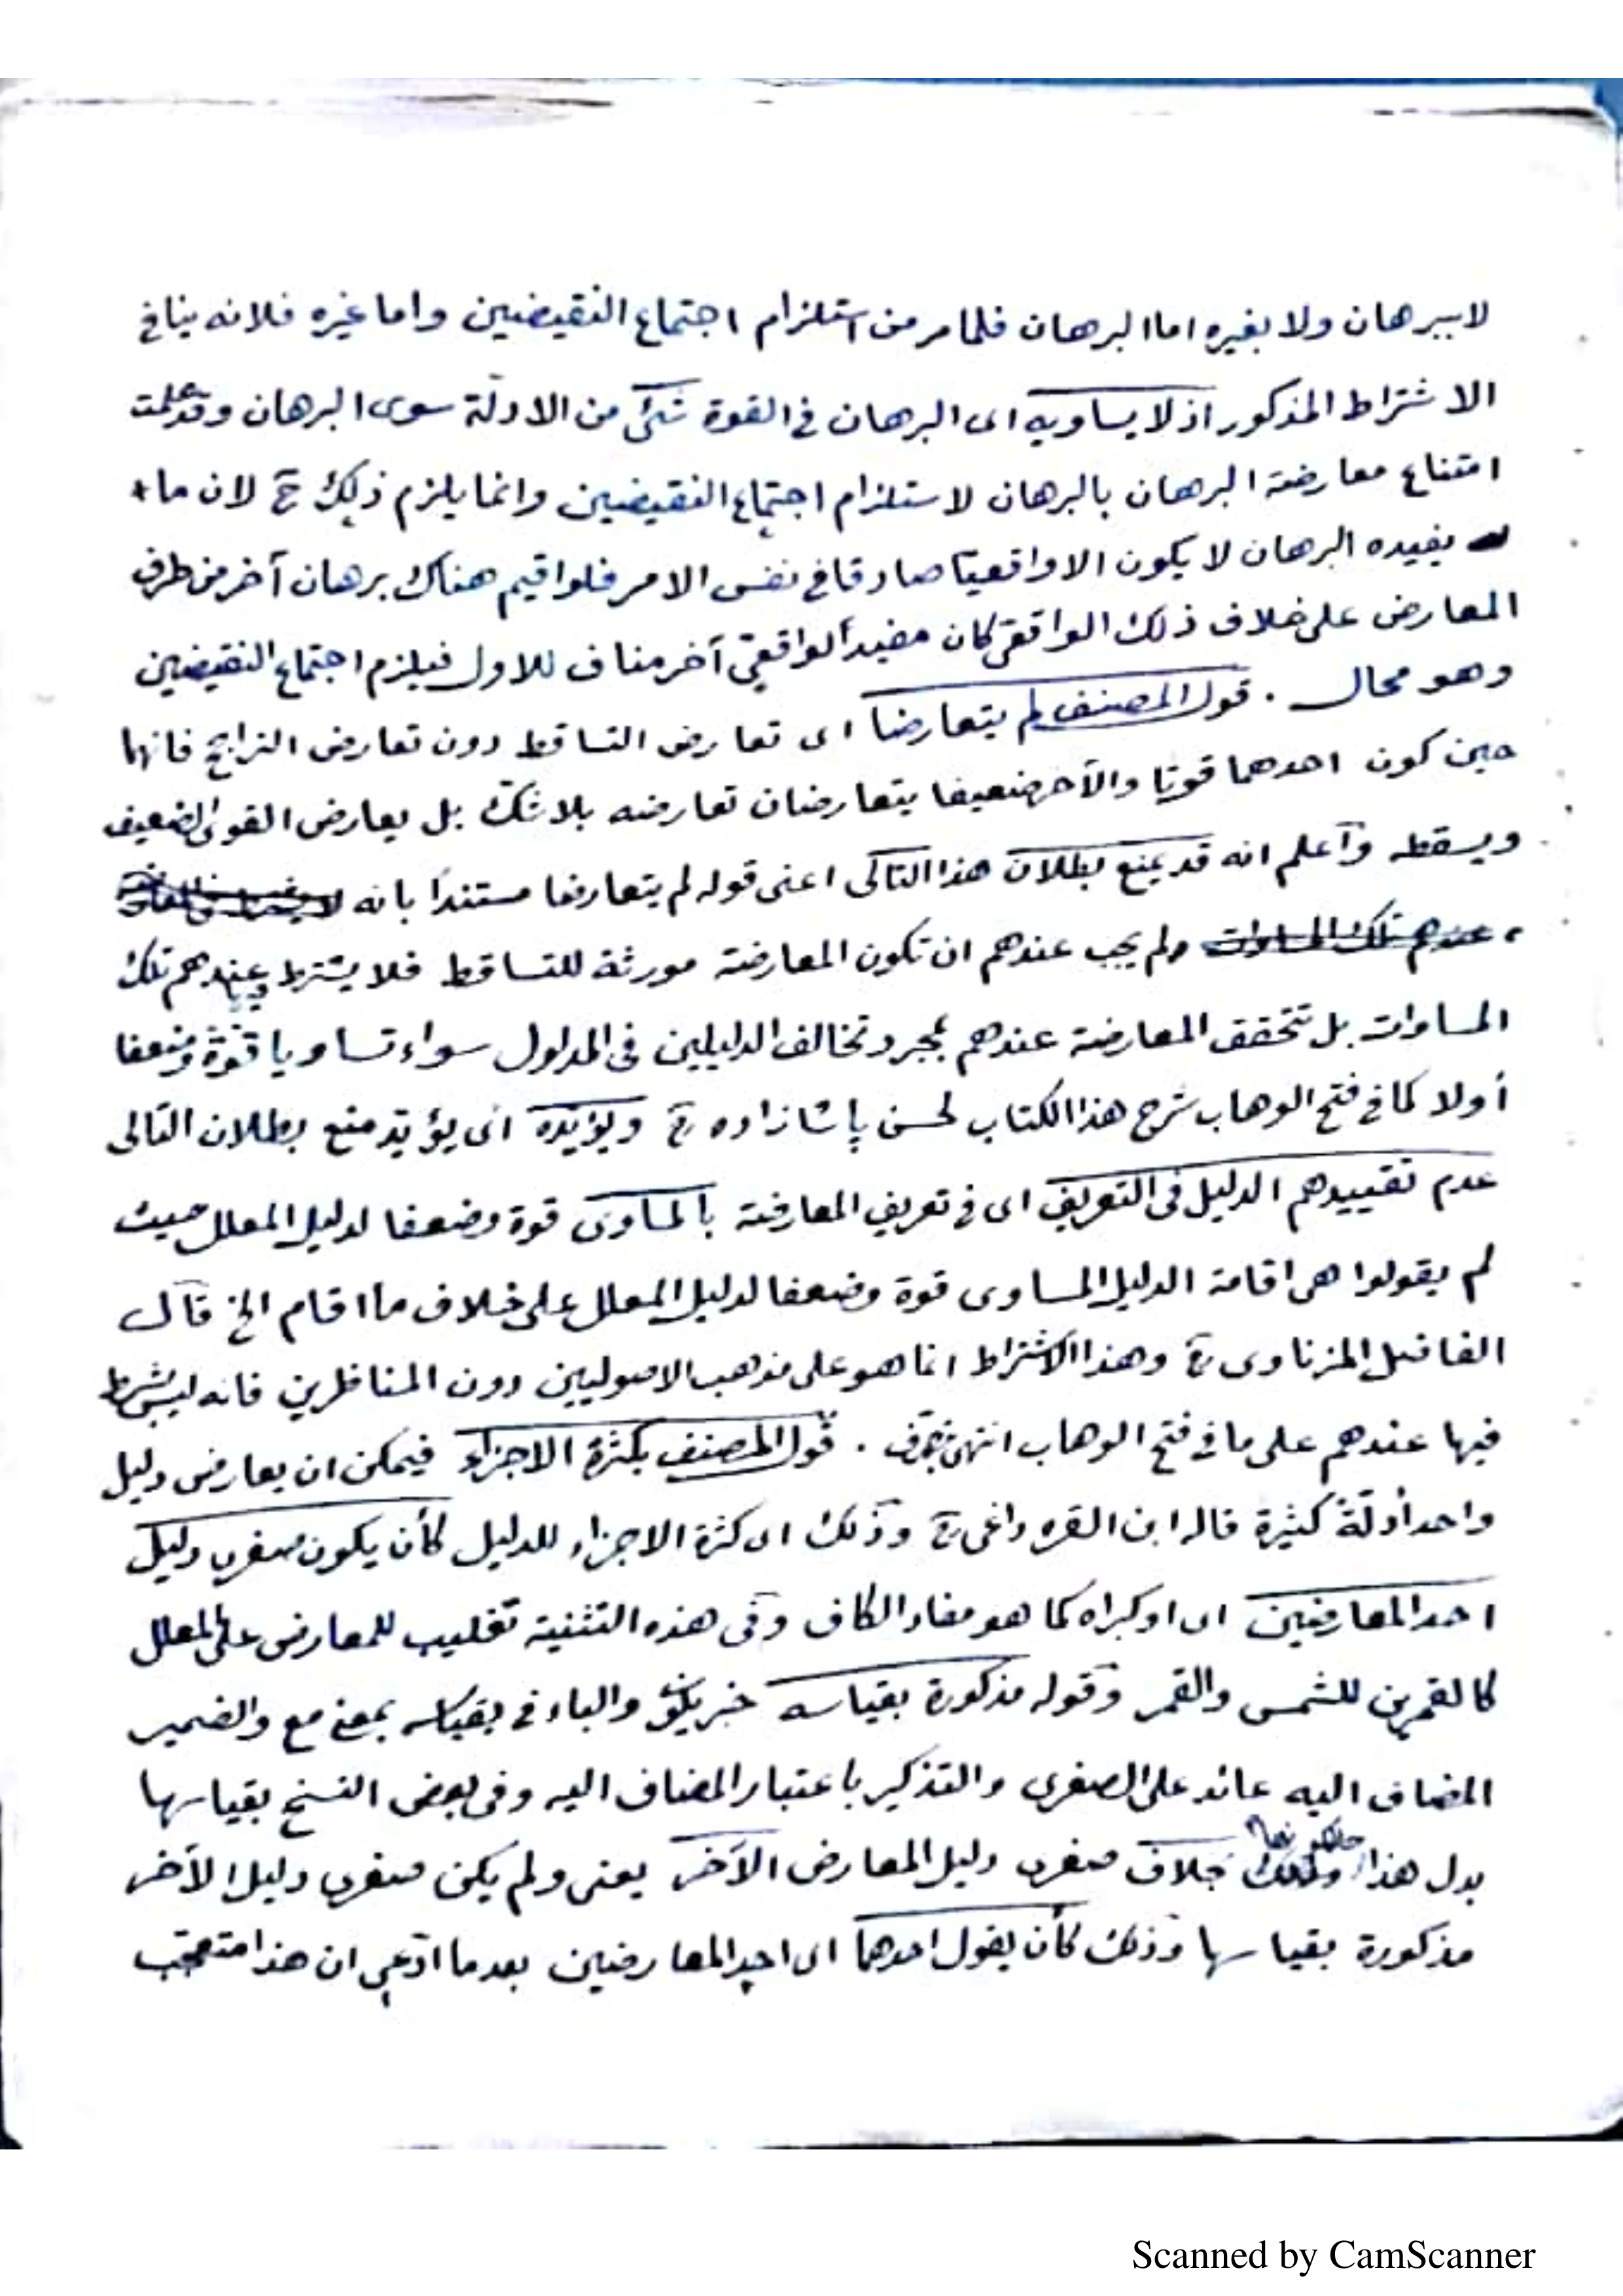 لا ببرهان ولا بغيره اما البرهان فلما مر من استلزام اجتماع النقيضين واما غيره فلانه ينافى
الاشتراط المذكور اذ لا يساويه اى البرهان فى القوة شئ من الادلة سوى البرهان وقد علمت
امتناع معارضة البرهان بالبرهان لاستلزام اجتماع النقيضين وانما يلزم ذلك ح لان ما
يفيده البرهان لا يكون الا واقعيا صادقا فى نفس الامر فلو اقيم هناك برهان آخر من طرف
المعارض على خلاف ذلك الواقعى كان مفيدا لواقعى آخر مناف للاول فيلزم اجتماع النقيضين
وهو محال . قول المصنف لم يتعارضا اى تعارض التساقط دون تعارض الترابح فانهما
حين كون احدهما قويا والآخر ضعيفا يتعارضان تعارضه بلا شك بل يعارض القوى الضعيف
ويسقطه وآعلم انه قد يمنع بطلان هذا التالى اعنى قوله لم يتعارضا مستندا بانه
ولم يجب عندهم ان تكون المعارضة مورثة للتساقط فلا يشترط عندهم تلك
المساوات بل تتحقق المعارضة عندهم بمجرد تخالف الدليلين فى المدلول سواء تساويا قوة وضعفا
أو لا كما فى فتح الوهاب شرح هذا الكتاب لحسن پاشا زاده رح ويؤيده اى يؤيد منع بطلان التالى
عدم تقييدهم الدليل فى التعريف اى فى تعريف المعارضة بالمساوى قوة وضعفا لدليل المعلل حيث
لم يقولوا هى اقامة الدليل المساوى قوة وضعفا لدليل المعلل على خلاف ما اقام الخ قال
الفاضل المزناوى رح وهذا الاشتراط انما هو على مذهب الاصوليين دون المناظرين فانه ليس بشرط
فيها عندهم على ما فى فتح الوهاب انتهى بتصرف . قول المصنف بكثرة الاجزاء فيمكن ان يعارض دليل
واحد أدلة كثيرة قاله ابن القره داغى رح وذلك اى كثرة الاجزاء للدليل كأن يكون صغرى دليل
احد المعارضين اى او كبراه كما هو مفاد الكاف وفى هذه التثنية تغليب للمعارض على المعلل
كالقمرين للشمس والقمر وقوله مذكورة بقياسه خبر يكون والباء فى بقياسه بمعنى مع والضمير
المضاف اليه عائد على الصغرى والتذكير باعتبار المضاف اليه وفى بعض النسخ بقياسها
بدل هذا خلاف صغرى دليل المعارض الآخر يعنى ولم يكن صغرى دليل الآخر
مذكورة بقياسها وذلك كأن يقول احدهما اى احد المعارضين بعد ما ادعى ان هذا متعجب
Scanned by CamScanner